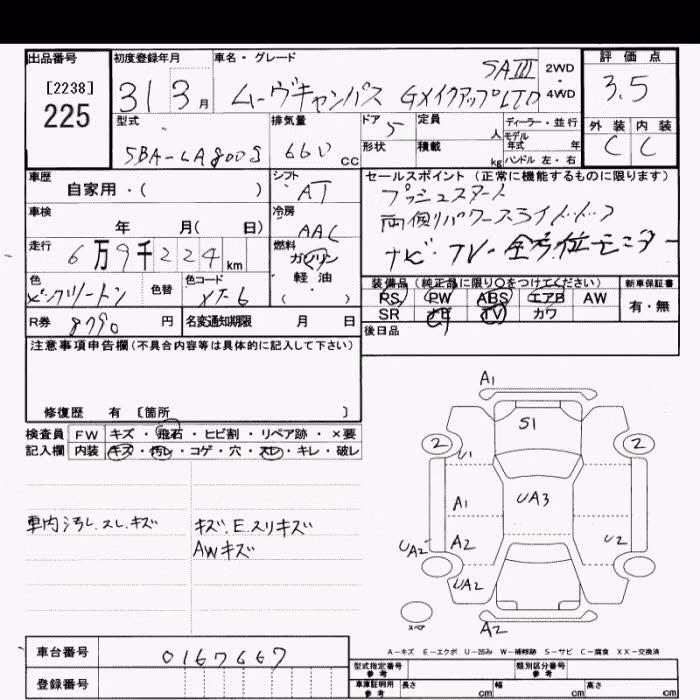 出品番号 初度登録年月 車名・グレード 評価点
[2238] 225 31 3月 ムーヴキャンバス GメイクアップLTD SAIII 2WD・4WD 3.5
型式 排気量 ドア 定員 人 ディーラー・並行 外装 内装
5BA-LA800S 660 cc 5 形状 積載 kg モデル年式 年 ハンドル 左・右 C C
車歴 シフト セールスポイント (正常に機能するものに限ります)
自家用・( ) AT プッシュスタート
車検 冷房 両側パワースライドドア
年 月( 日) AAC ナビ・TV・全方位モニター
走行 燃料
6万9千224km ガソリン 軽油 ( )
色 色替 色コード 装備品 (純正品に限り○をつけてください) 新車保証書
ピンクツートン XF6 PS PW ABS エアB AW 有・無
R券 8790円 名変通知期限 月 日 SR ナビ TV カワ
注意事項申告欄(不具合内容等は具体的に記入して下さい) 後日品
修復歴 有 [箇所 ]
検査員 FW キズ・飛石・ヒビ割・リペア跡・×要
記入欄 内装 キズ・汚レ・コゲ・穴・スレ・キレ・破レ
車内汚レ.スレ.キズ キズ.E.スリキズ
AWキズ
A1
S1
2 2
U1
A1 UA3
A2 U2
UA2
UA2
スペア A2
A-キズ E-エクボ U-凹み W-補修跡 S-サビ C-腐食 XX-交換済
車台番号 0167667 型式指定番号 参考 類別区分番号 参考
登録番号 車庫証明用 参考 長さ cm 幅 cm 高さ cm